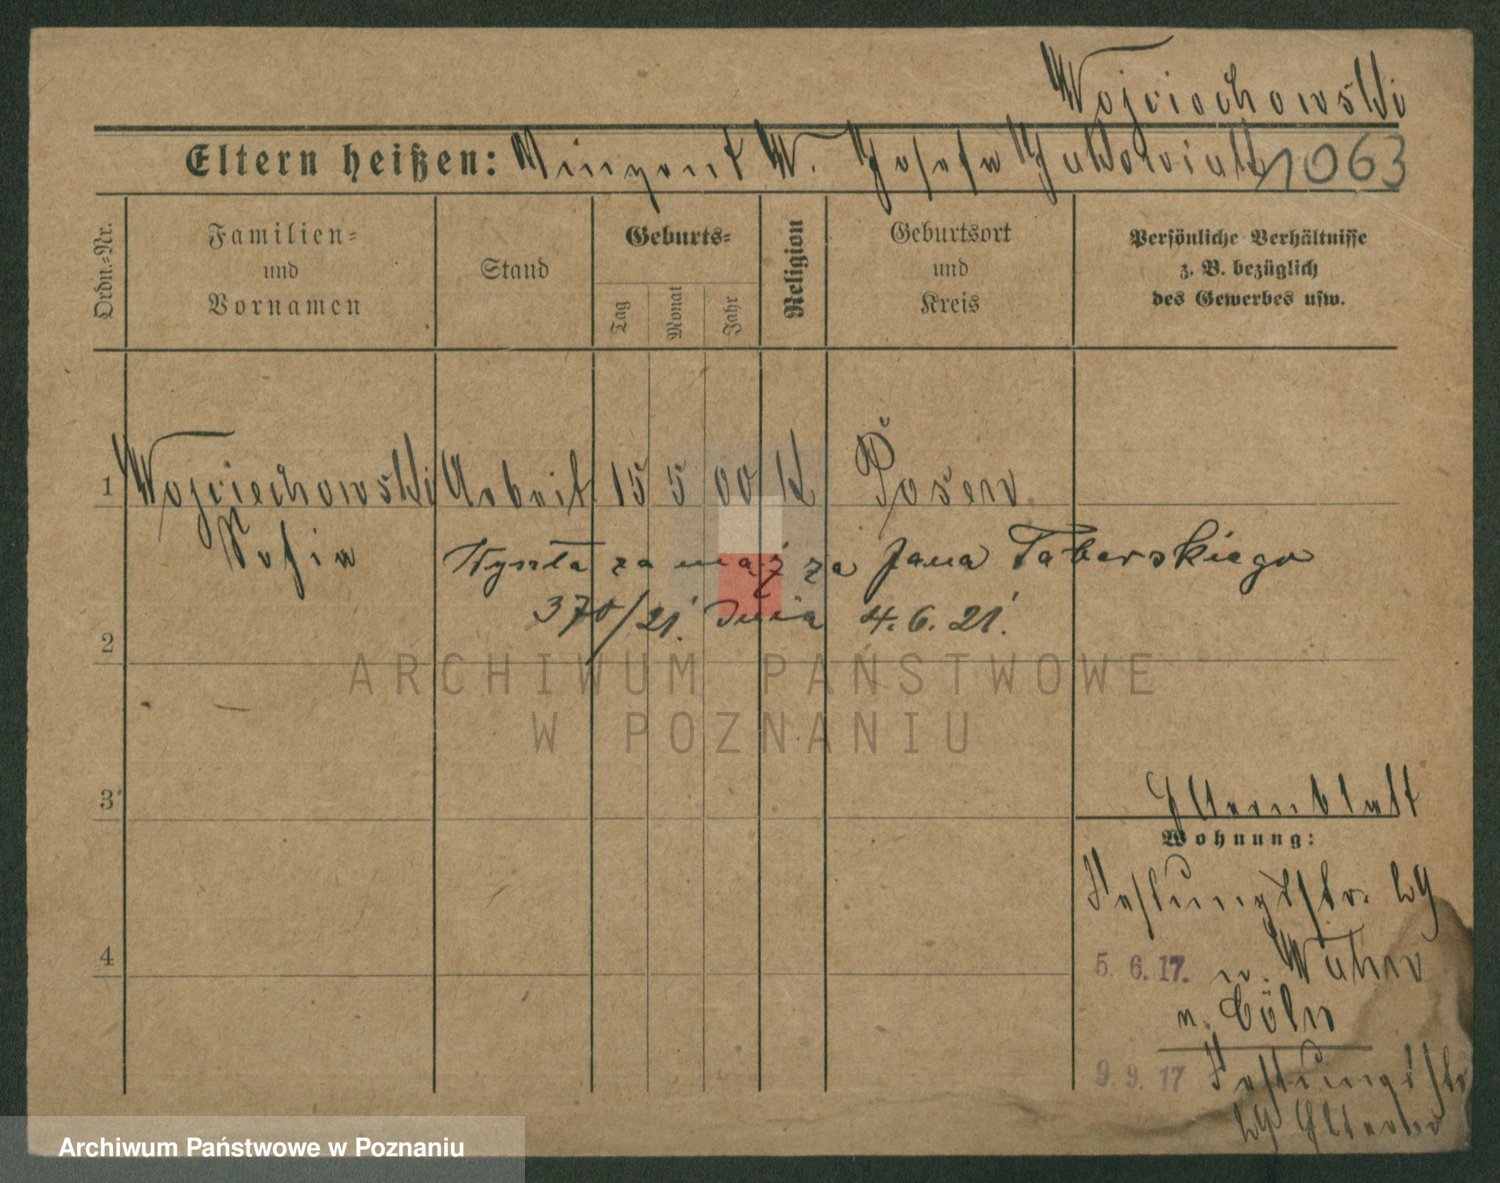 Wojciechowski
Eltern heißen: Vinzent W. Josefa 1063
Ordn.-Nr.
Familien-
und
Vornamen
Stand
Geburts-
Tag
Monat
Jahr
Religion
Geburtsort
und
Kreis
Persönliche Verhältnisse
z. B. bezüglich
des Gewerbes usw.
1 Wojciechowski Arbeit. 15 5 00 K Posen
Sofia
Wyszła za mąż za Jana Taberskiego
370/21. dnia 4.6.21.
2
ARCHIWUM PAŃSTWOWE
W POZNANIU
3
Elternblatt
Wohnung:
Festungsstr. 29
4
5. 6. 17. n.
n. Cöln
9. 9. 17 Festungsstr
29 Eltern
Archiwum Państwowe w Poznaniu